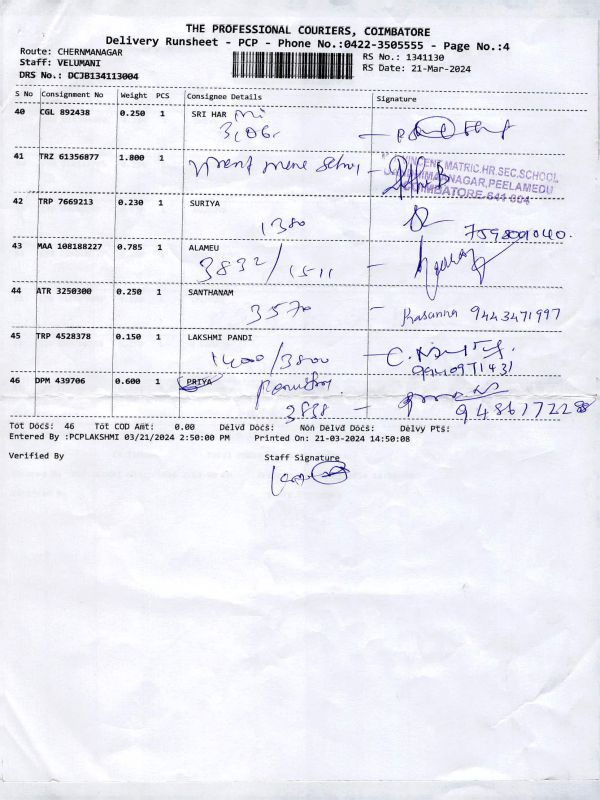 THE PROFESSIONAL COURIERS, COIMBATORE
Delivery Runsheet - PCP - Phone No.:0422-3505555 - Page No.:4
Route: CHERNMANAGAR
Staff: VELUMANI
DRS No.: DCJB134113004
RS No.: 1341130
RS Date: 21-Mar-2024
S No Consignment No Weight PCS Consignee Details Signature
40 CGL 892438 0.250 1 SRI HAR
41 TRZ 61356877 1.800 1
VINCENT MATRIC.HR.SEC.SCHOOL
NAGAR,PEELAMEDU
COIMBATORE-641 004
42 TRP 7669213 0.230 1 SURIYA
1380
43 MAA 108188227 0.785 1 ALAMEU
3832/1511
44 ATR 3250300 0.250 1 SANTHANAM
3570 Rasanna 9443471997
45 TRP 4528378 0.150 1 LAKSHMI PANDI
1400/3800
9940971431
46 DPM 439706 0.600 1 PRIYA
3838
Tot Docs: 46 Tot COD Amt: 0.00 Delvd Docs: Non Delvd Docs: Delvy Pts:
Entered By :PCPLAKSHMI 03/21/2024 2:50:00 PM Printed On: 21-03-2024 14:50:08
Verified By Staff Signature